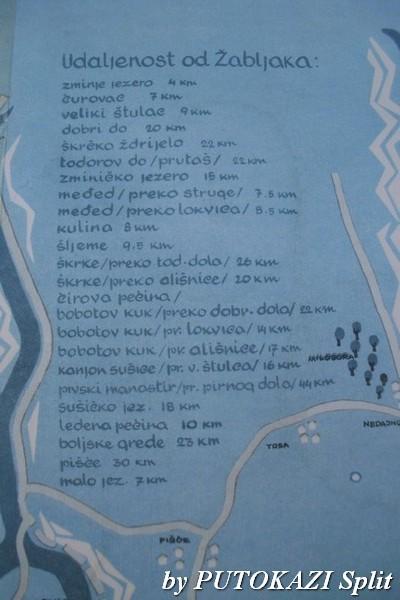 Udaljenost od Žabljaka:
zminje jezero 4 km
čurovac 7 km
veliki štulac 9 km
dobri do 20 km
škrčko ždrijelo 22 km
todorov do /prutaš/ 22 km
zminičko jezero 15 km
međed/preko struge/ 7.5 km
međed/preko lokvica/ 8.5 km
kulina 8 km
šljeme 9,5 km
škrke/preko tod. dola/ 26 km
škrke/preko ališnice/ 20 km
čirova pećina/
bobotov kuk/preko dobr. dola/ 22 km
bobotov kuk/pr. lokvica/ 14 km
bobotov kuk/pr. ališnice/ 17 km
kanjon sušice/pr. v. štulca/ 16 km
pivski manastir/pr. pirnog dola/ 44 km
sušičko jez. 18 km
ledena pećina 10 km
boljske grede 23 km
pišče 30 km
malo jez. 7 km
MILOGORA
NEDAJNO
TOSA
PIŠČE
by PUTOKAZI Split